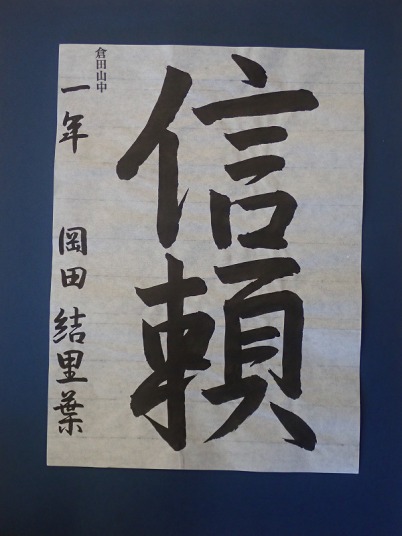 信頼
倉田山中
一年 岡田 結里葉